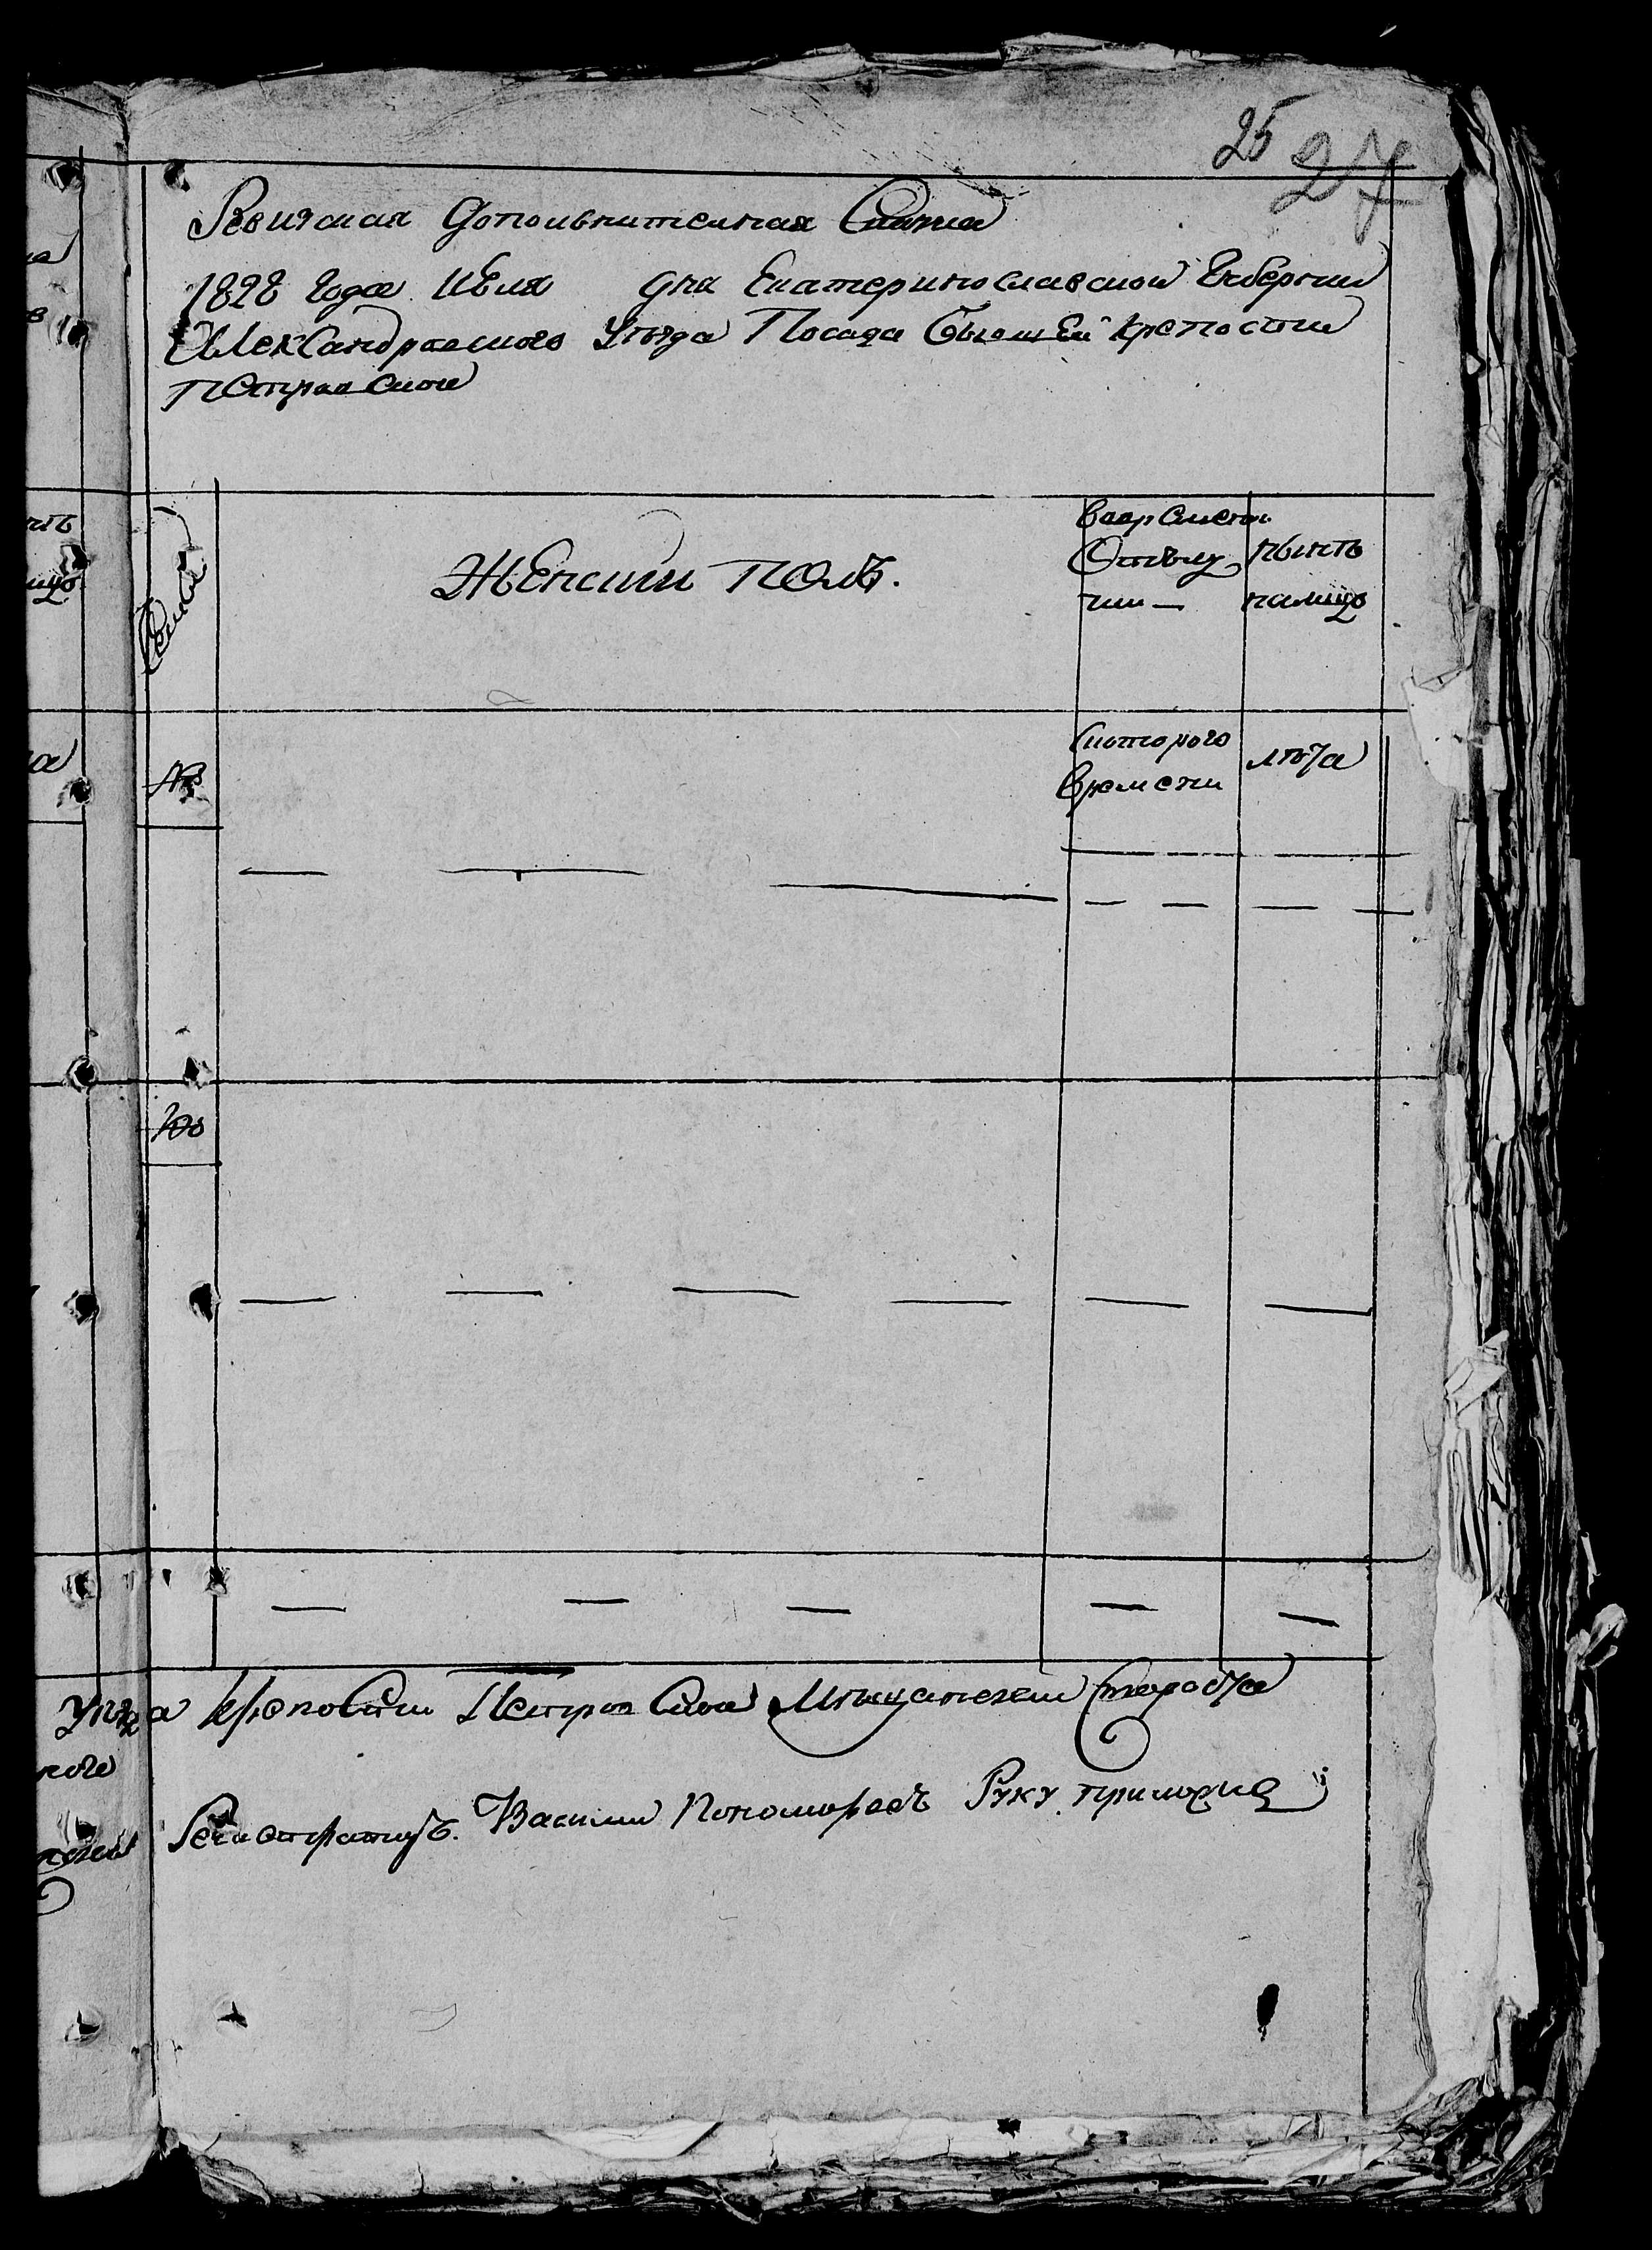 25 27
Ревижская дополнительная Сказка
1828 года июля дня Екатеринославской Губернии
Александровского Уезда Посада Бывшей крепости
Петровской
Семьи
Женский полъ.
Во временной
Отлуч
ки —
ныне
налицо
№
С которого
времени
лета
№
Уезда крепости Петровской Мещанский староста
Регистраторъ. Василий Пономаревъ Руку приложил